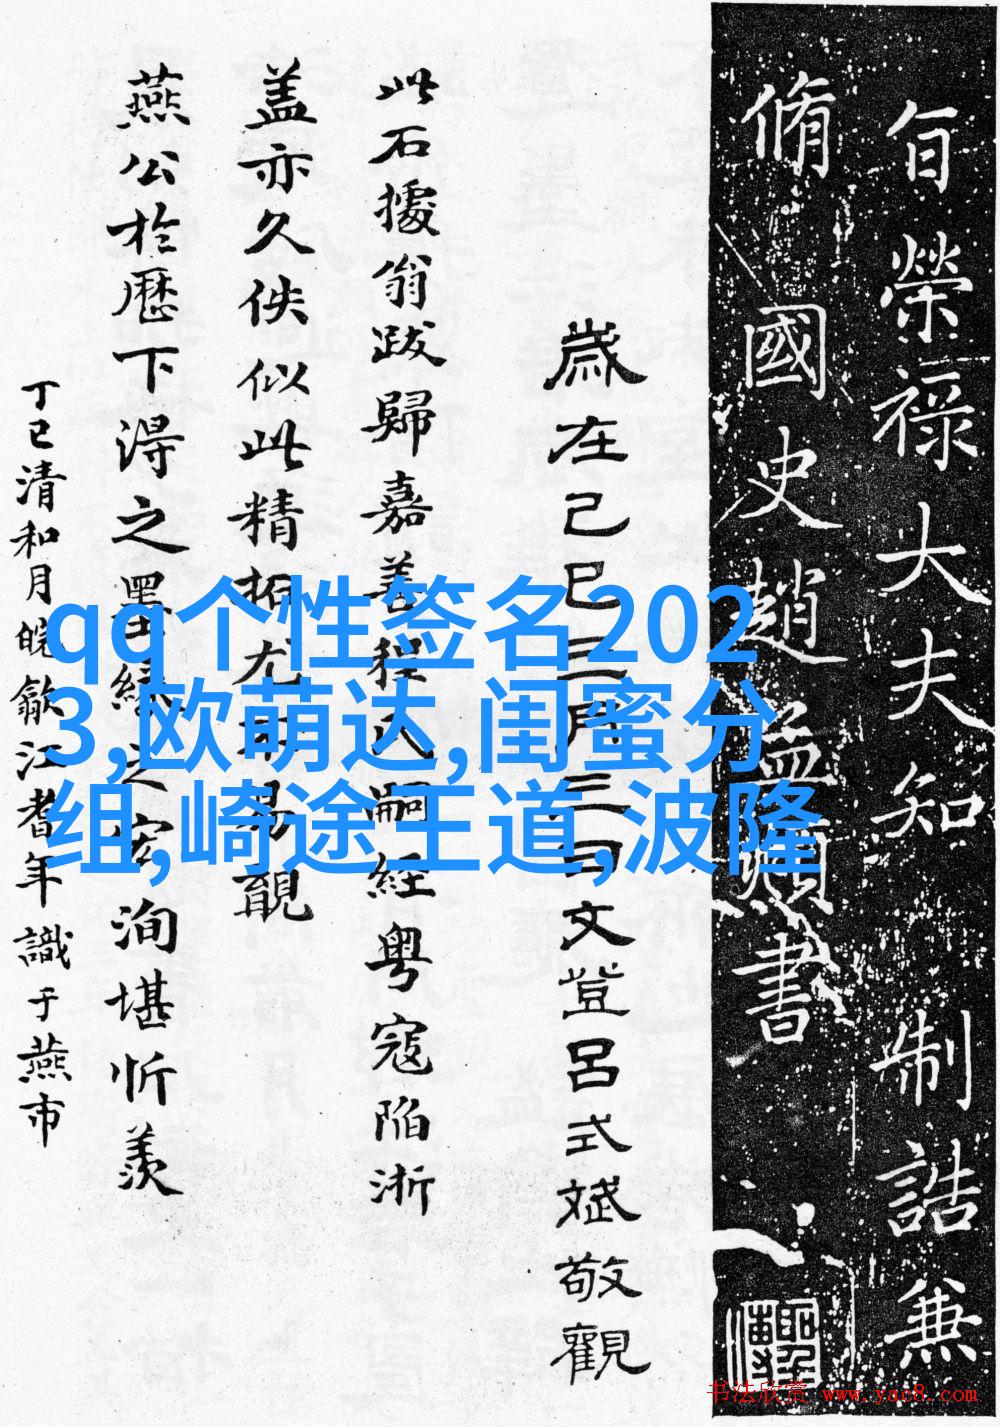 旨榮祿大夫知 制誥兼
脩國史趙孟頫書
歲在己巳三月三日文登呂式斌敬觀
此石據翁跋歸嘉善程氏嗣經粵寇陷浙
蓋亦久佚似此精拓尤不易覯
燕公於歷下得之墨緣之宏洵堪忻羨
丁巳清和月皖歙江耆年識于燕市
qq个性签名202
3,欧萌达,闺蜜分
组,崎途王道,波隆
书法欣赏 www.yac8.com